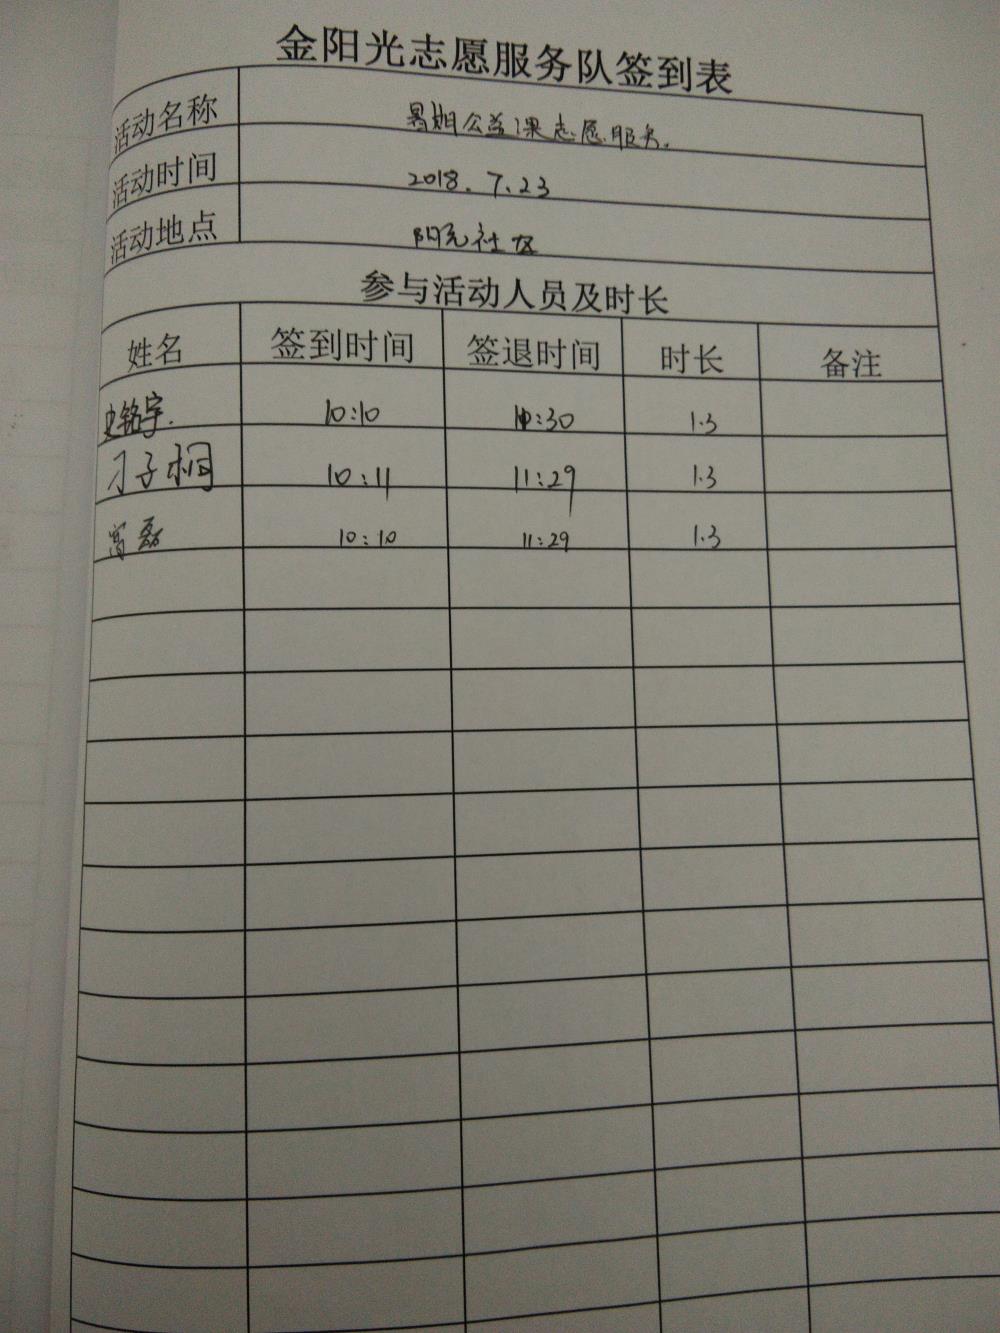 金阳光志愿服务队签到表
活动名称 暑期公益课志愿服务.
活动时间 2018.7.23
活动地点 阳光社区
参与活动人员及时长
姓名 签到时间 签退时间 时长 备注
史铭宇. 10:10 :30 1.3
刁子桐 10:11 11:29 1.3
富磊 10:10 11:29 1.3